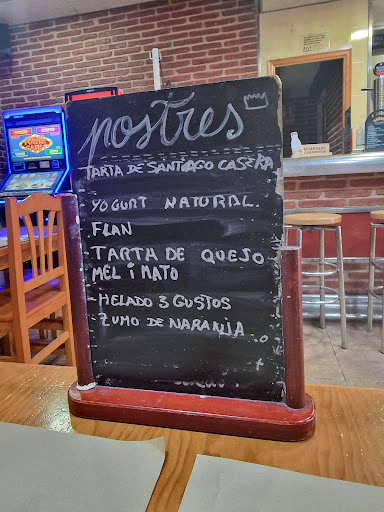 postres
TARTA DE SANTIAGO CASERA
YOGURT NATURAL.
FLAN
- TARTA DE QUESO
MEL i MATO
- HELADO 3 GUSTOS
- ZUMO DE NARANJA